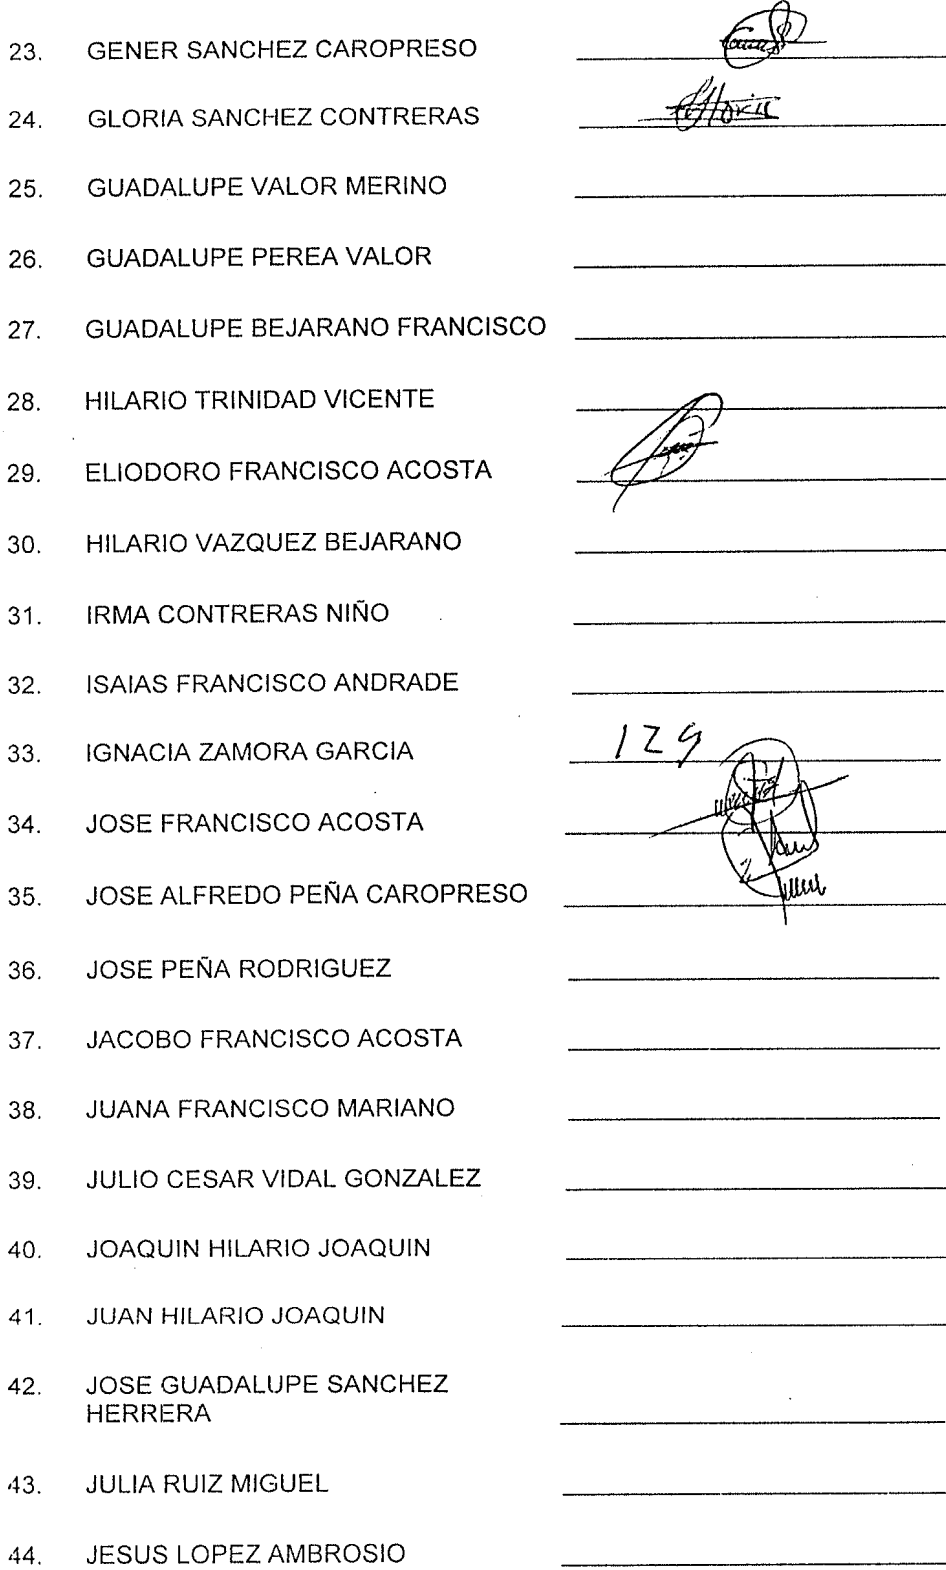 23. GENER SANCHEZ CAROPRESO
24. GLORIA SANCHEZ CONTRERAS
25. GUADALUPE VALOR MERINO
26. GUADALUPE PEREA VALOR
27. GUADALUPE BEJARANO FRANCISCO
28. HILARIO TRINIDAD VICENTE
29. ELIODORO FRANCISCO ACOSTA
30. HILARIO VAZQUEZ BEJARANO
31. IRMA CONTRERAS NIÑO
32. ISAIAS FRANCISCO ANDRADE
33. IGNACIA ZAMORA GARCIA
34. JOSE FRANCISCO ACOSTA
35. JOSE ALFREDO PEÑA CAROPRESO
36. JOSE PEÑA RODRIGUEZ
37. JACOBO FRANCISCO ACOSTA
38. JUANA FRANCISCO MARIANO
39. JULIO CESAR VIDAL GONZALEZ
40. JOAQUIN HILARIO JOAQUIN
41. JUAN HILARIO JOAQUIN
42. JOSE GUADALUPE SANCHEZ
HERRERA
43. JULIA RUIZ MIGUEL
44. JESUS LOPEZ AMBROSIO